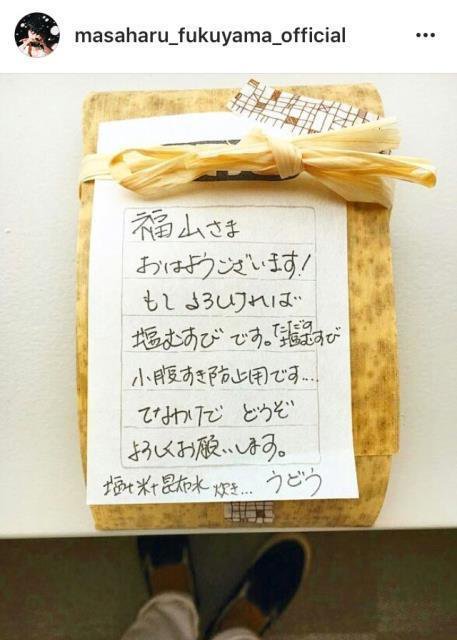 masaharu_fukuyama_official
福山さま
おはようございます!
もしよろしければ
塩むすびです。ただの塩むすび
小腹すき防止用です...
てなわけで どうぞ
よろしくお願いします。
塩+米+昆布水 炊き... うどう